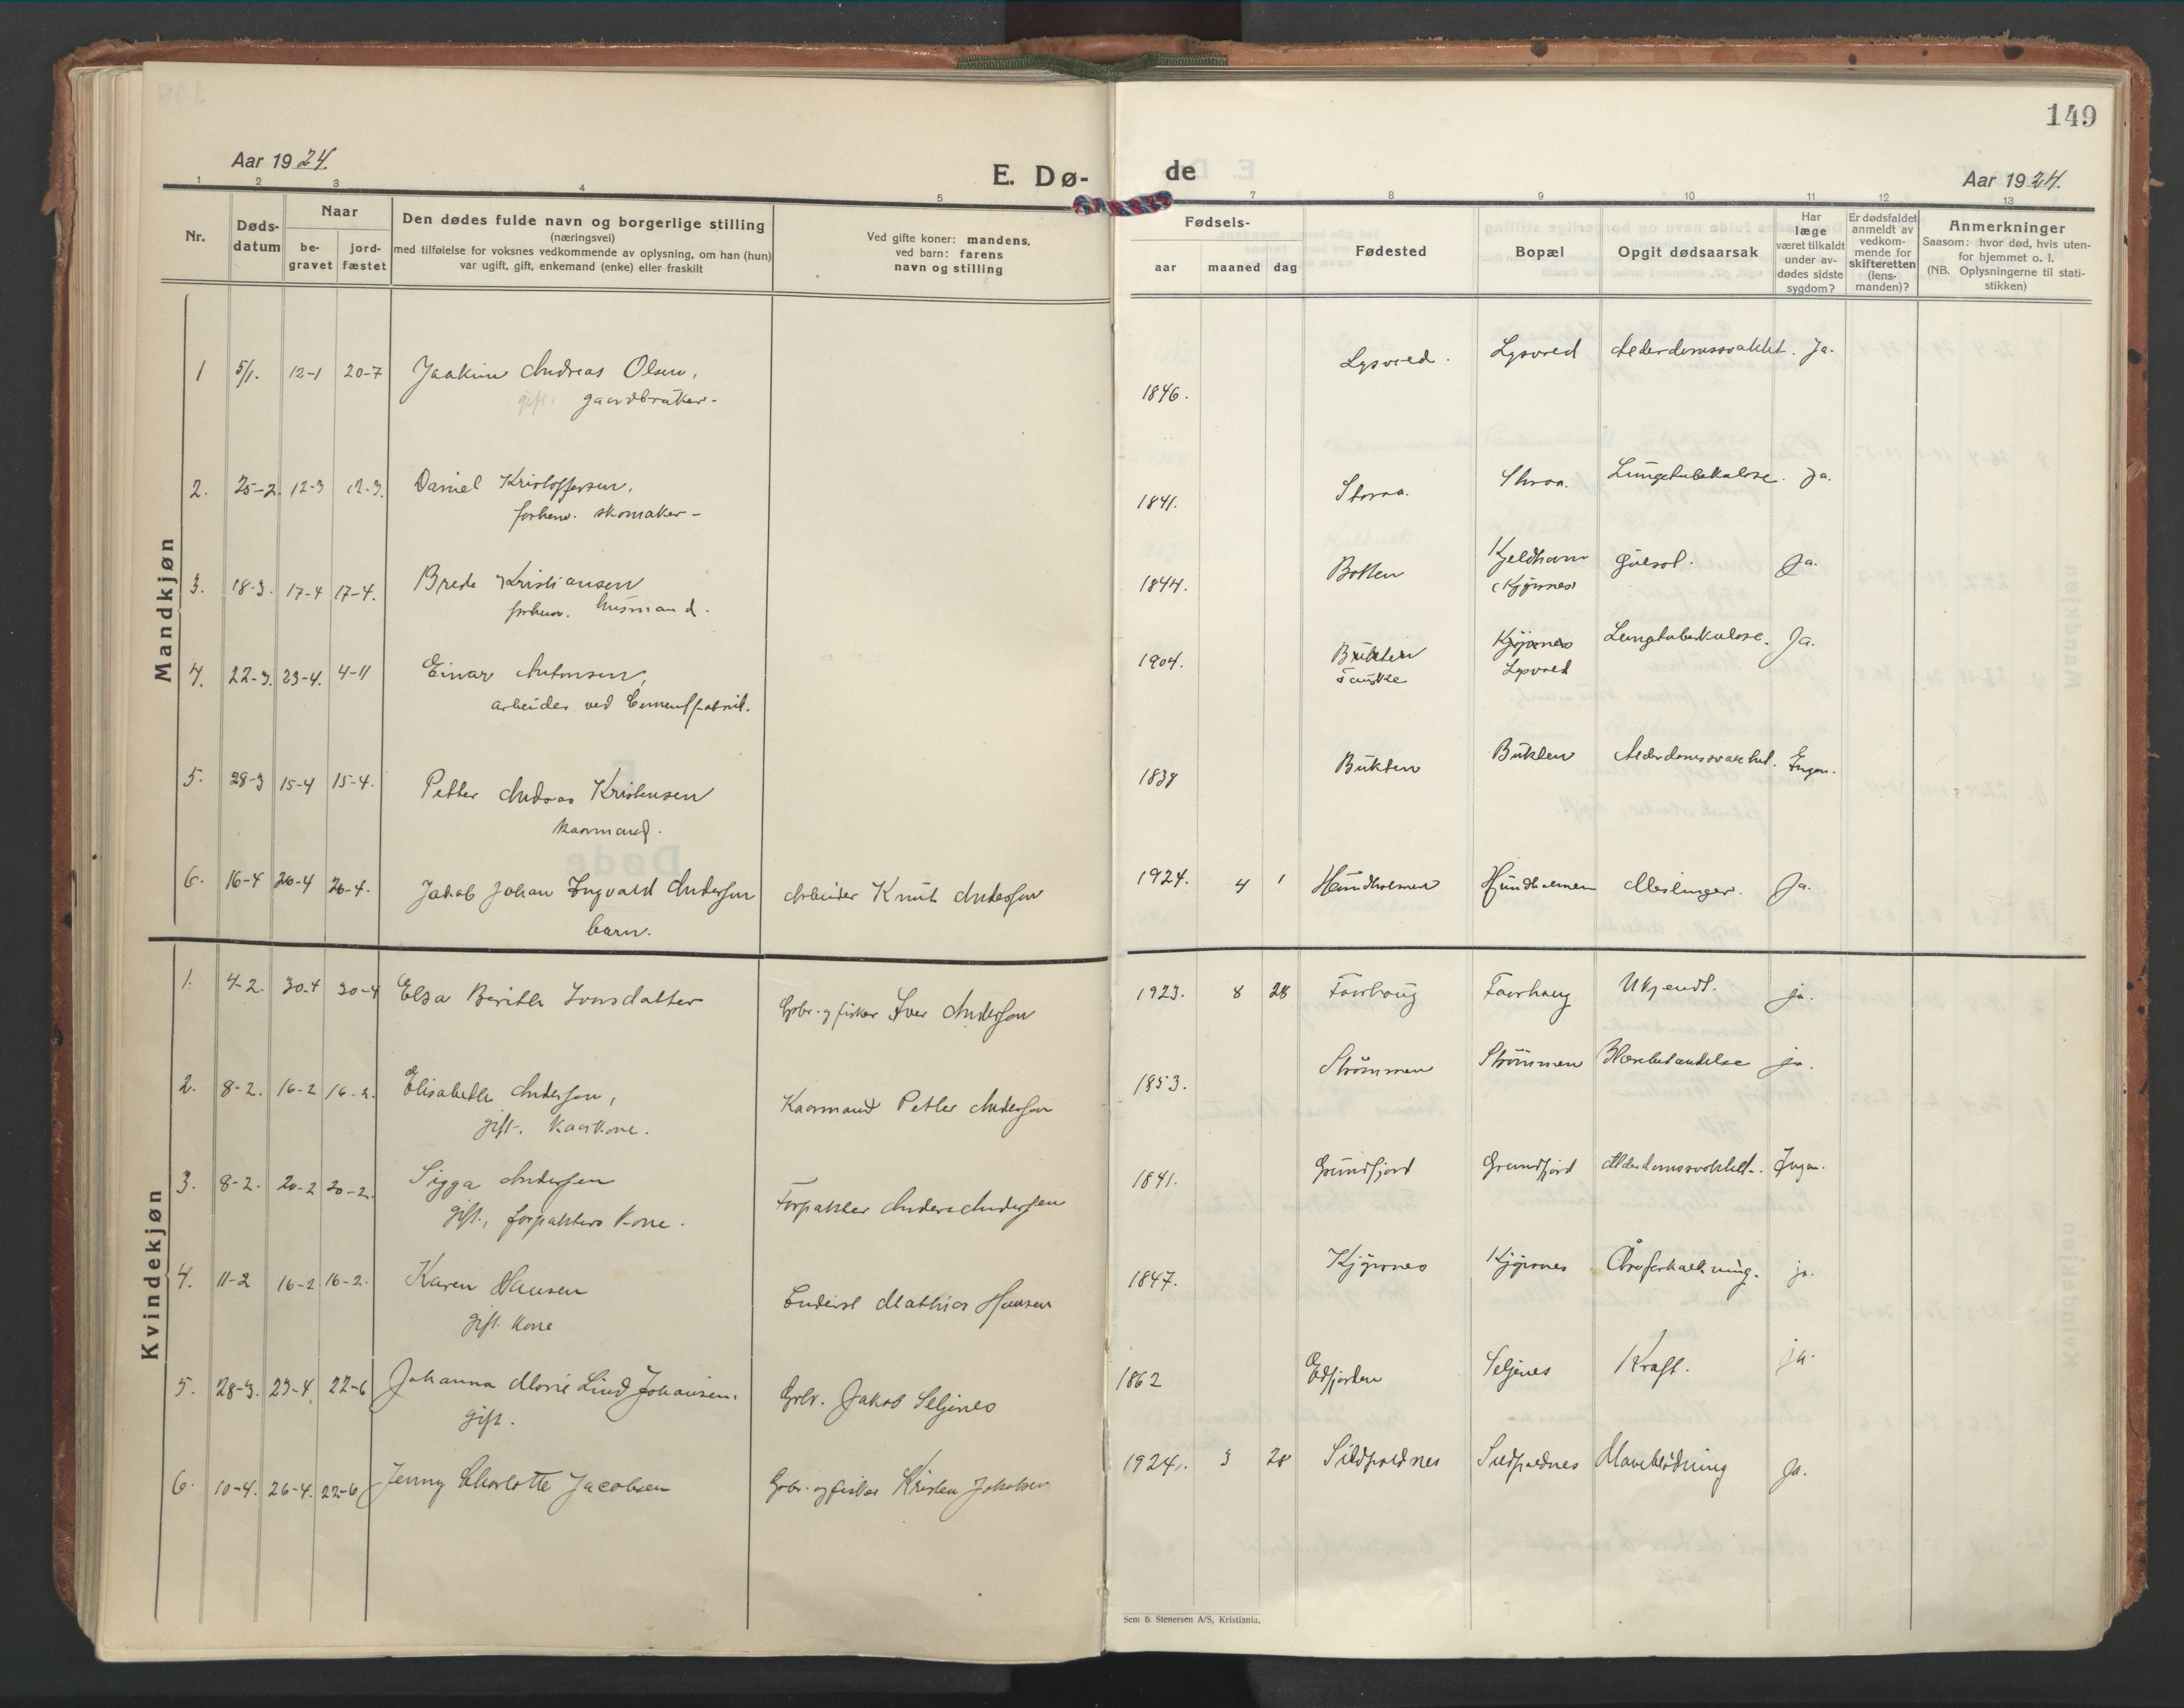 149
Aar 1924.
E. Dø-
de
Aar 1924.
1 2 3 4 5 7 8 9 10 11 12 13
Nr.
Døds-
datum
Naar
be-
gravet
jord-
fæstet
Den dødes fulde navn og borgerlige stilling
(næringsvei)
med tilføielse for voksnes vedkommende av oplysning, om han (hun)
var ugift, gift, enkemand (enke) eller fraskilt
Ved gifte koner: mandens,
ved barn: farens
navn og stilling
Fødsels-
aar maaned dag
Fødested
Bopæl
Opgit dødsaarsak
Har
læge
været tilkaldt
under av-
dødes sidste
sygdom?
Er dødsfaldet
anmeldt av
vedkom-
mende for
skifteretten
(lens-
manden)?
Anmerkninger
Saasom: hvor død, hvis uten-
for hjemmet o. l.
(NB. Oplysningerne til stati-
stikken)
Mandkjøn
1 5/1. 12-1 20-7 Joakim Andreas Olsen, 1846. Lysvold. Lysvold Alderdomssvakhet. Ja.
gift. gaardbruker-
2. 25-2. 12-3 12-3. Daniel Kristoffersen, 1841. Storaa. Storaa. Lungetuberkulose. Ja.
forhenv. skomaker-
3. 18-3. 17-4 17-4. Brede Kristiansen 1844. Botten Kjeldhavn Gulsot. Ja.
forhenv. husmand. (Kjøpsnes)
4. 22-3. 23-4. 4-11 Einar Antonsen, 1904. Bukten Kjøpsnes Lungetuberkulose. Ja.
arbeider ved Cementfabrik. Fauske Lysvold
5. 28-3 15-4 15-4. Petter Andreas Kristensen 1838 Bukten Bukten Alderdomssvakhet. Ingen.
Kaarmand.
6. 16-4 26-4 26-4. Jakob Johan Ingvald Anderssen Arbeider Knut Anderssen 1924. 4 1 Hundholmen Hundholmen Meslinger. Ja.
barn.
Kvindekjøn
1. 4-2. 30-4 30-4 Elsa Berithe Iversdatter Gbr. og fisker Iver Anderssen 1923. 8 28 Faerhaug Faerhaug Ukjendt. ja.
2. 8-2. 16-2 16-2. Elisabeth Anderssen, Kaarmand Petter Anderssen 1853. Strømmen Strømmen Blærebetændelse ja.
gift. Kaarkone.
3. 8-2. 20-2 20-2. Sigga Anderssen Forpakter Anders Anderssen 1841. Grundfjord Grundfjord Alderdomssvakhet. Ingen.
gift, forpakters kone.
4. 11-2 16-2 16-2. Karen Hansen Mathias Hansen 1847. Kjøpsnes Kjøpsnes Åreforkalkning. ja.
gift. kone
5. 28-3. 23-4. 22-6 Johanna Marie Lind Johansen. Gbr. Jakob Seljenes 1862 Edfjorden Seljenes Kræft. ja.
gift.
6. 10-4. 26-4. 22-6 Jenny Charlotte Jacobsen Gbr. og fisker Kristen Jakobsen 1924. 3 28 Sildpoldnes Sildpoldnes Maveblødning Ja.
Sem & Stenersen A/S, Kristiania.